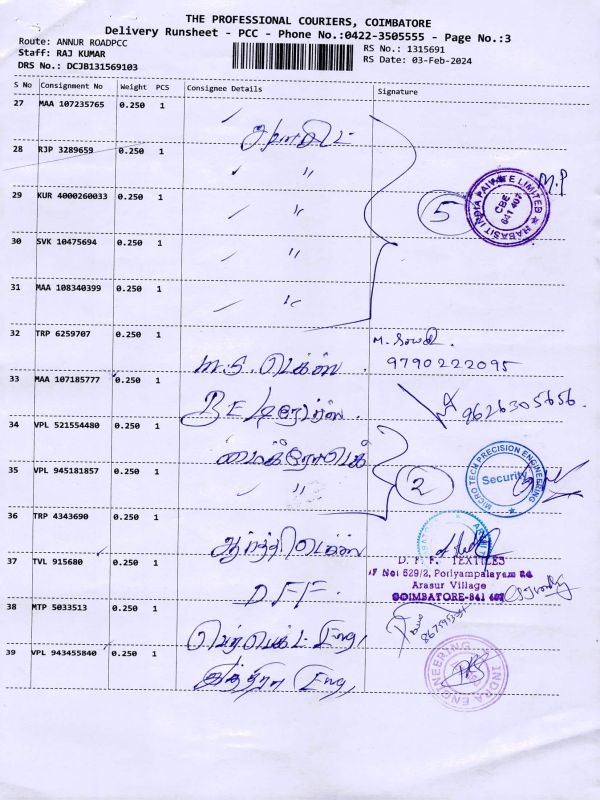 THE PROFESSIONAL COURIERS, COIMBATORE
Delivery Runsheet - PCC - Phone No.:0422-3505555 - Page No.:3
Route: ANNUR ROADPCC
RS No.: 1315691
Staff: RAJ KUMAR
RS Date: 03-Feb-2024
DRS No.: DCJB131569103
S No Consignment No Weight PCS Consignee Details Signature
27 MAA 107235765 0.250 1
28 RJP 3289659 0.250 1 "
29 KUR 4000260033 0.250 1 "
5
MABASIT INDIA PAIVATE LIMITED
CBE
641 407
M.P
30 SVK 10475694 0.250 1 "
31 MAA 108340399 0.250 1 "
32 TRP 6259707 0.250 1 M.S. டெக்ஸ்
9790222095
33 MAA 107185777 0.250 1
9626305656
34 VPL 521554480 0.250 1
35 VPL 945181857 0.250 1 "
2
MICRO TECH PRECISION ENGINEERING
Security
36 TRP 4343690 0.250 1
37 TVL 915680 0.250 1 D.F.F.
D. F. F. TEXTILES
SF No: 529/2, Poriyampalayam Rd
Arasur Village
COIMBATORE-641 407
38 MTP 5033513 0.250 1 பெர்பெக்ட் Eng,
39 VPL 943455840 0.250 1 இந்திரா Eng,
INDRA ENGINEERING